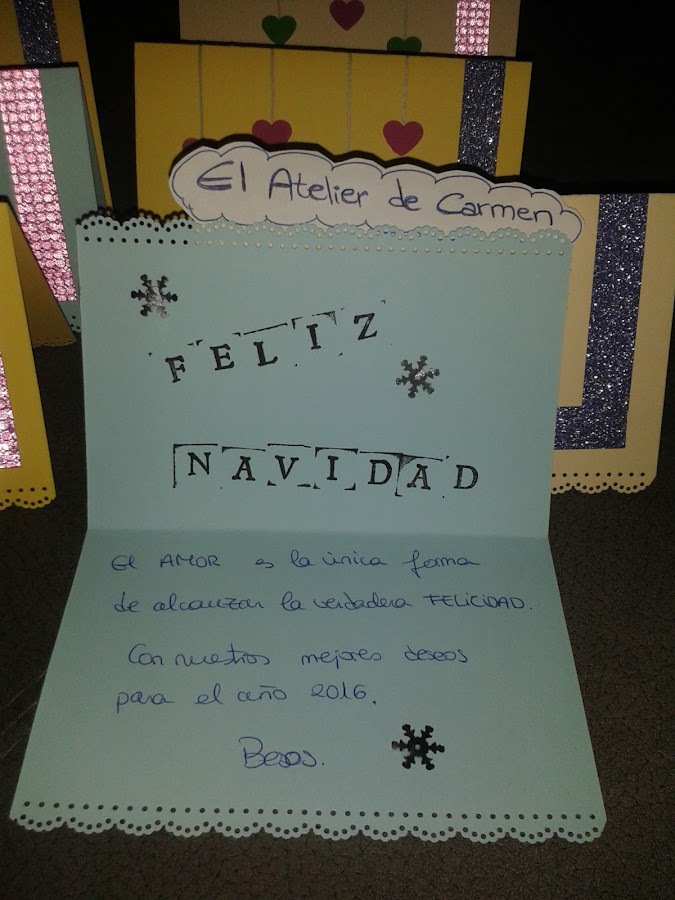 El Atelier de Carmen
FELIZ
NAVIDAD
El AMOR es la única forma
de alcanzar la verdadera FELICIDAD.
Con nuestros mejores deseos
para el año 2016.
Besos.